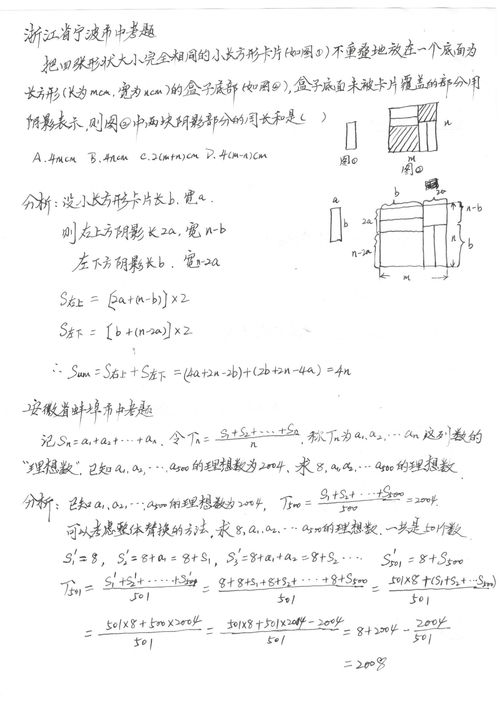 浙江省宁波市中考题
把四张形状大小完全相同的小长方形卡片(如图①)不重叠地放在一个底面为
长方形(长为mcm,宽为ncm)的盒子底部(如图②),盒子底面未被卡片覆盖的部分用
阴影表示,则图②中两块阴影部分的周长和是( )
A.4mcm B.4ncm C.2(m+n)cm D.4(m-n)cm
图①
m
n
图②
分析:设小长方形卡片长b,宽a.
则右上方阴影长2a,宽n-b
左下方阴影长b,宽n-2a
S右上 = [2a+(n-b)]×2
S左下 = [b+(n-2a)]×2
∴ Sum = S右上+S左下 = (4a+2n-2b)+(2b+2n-4a) = 4n
a
b
b
2a
2a
n-2a
n-b
n
b
m
2安徽省蚌埠市中考题
记Sn=a1+a2+…+an,令Tn= S1+S2+…+Sn / n ,称Tn为a1,a2,…an这列数的
"理想数",已知a1,a2,…a500的理想数为2004,求8,a1,a2…a500的理想数.
分析:已知a1,a2,…,a500的理想数为2004, T500= S1+S2+…+S500 / 500 =2004.
可以考虑整体替换的方法,求8,a1,a2…a500的理想数,一共是501个数
S1'=8, S2'=8+a1=8+S1, S3'=8+a1+a2=8+S2 … S501'=8+S500
T501= S1'+S2'+……+S501' / 501 = 8+8+S1+8+S2+…+8+S500 / 501 = 501×8+(S1+S2+…S500) / 501
= 501×8+500×2004 / 501 = 501×8+501×2004-2004 / 501 = 8+2004- 2004 / 501
=2008